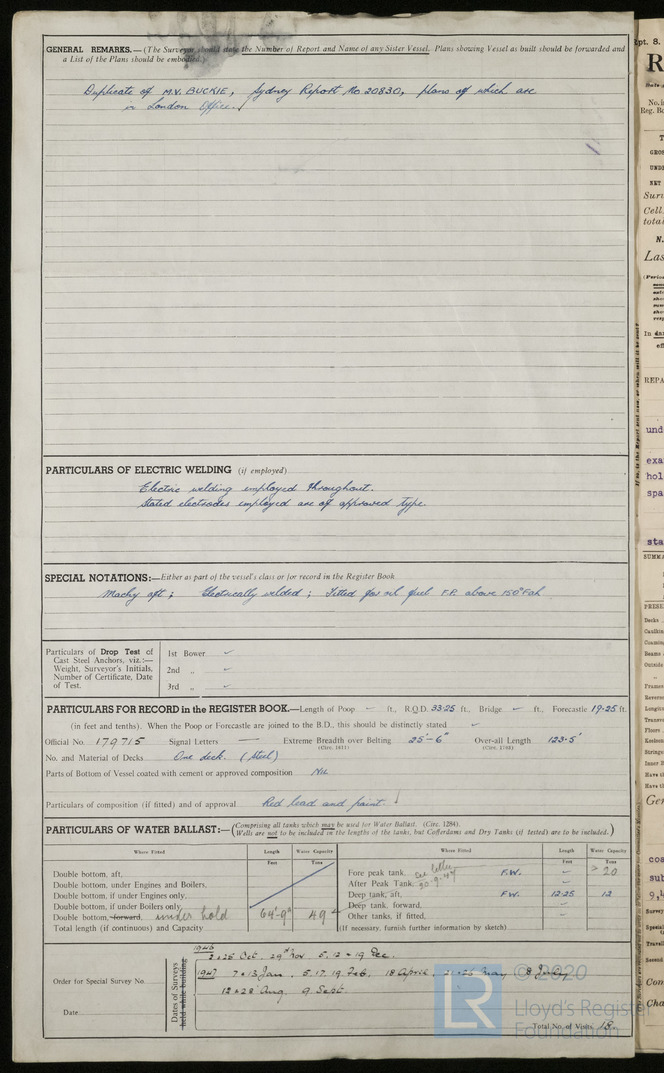 GENERAL REMARKS.—(The Surveyor should state the Number of Report and Name of any Sister Vessel. Plans showing Vessel as built should be forwarded and
a List of the Plans should be embodied.)
Duplicate of M.V. BUCKIE, Sydney Report No. 20830, plans of which are
in London Office.
PARTICULARS OF ELECTRIC WELDING (if employed)
Electric welding employed throughout.
Stated electrodes employed are of approved type.
SPECIAL NOTATIONS:—Either as part of the vessel's class or for record in the Register Book
Machy aft; Electrically welded; Fitted for oil fuel F.P. above 150°Fah
Particulars of Drop Test of
Cast Steel Anchors, viz.:—
Weight, Surveyor's Initials,
Number of Certificate, Date
of Test.
1st Bower
2nd „
3rd „
PARTICULARS FOR RECORD in the REGISTER BOOK.—Length of Poop ft., R.Q.D. 33·25 ft., Bridge ft., Forecastle 19·25 ft.
(in feet and tenths). When the Poop or Forecastle are joined to the B.D., this should be distinctly stated
Official No. 179715 Signal Letters — Extreme Breadth over Belting 25'-6" Over-all Length 123·5'
(Circ. 1611) (Circ. 1768)
No. and Material of Decks One deck. (Steel)
Parts of Bottom of Vessel coated with cement or approved composition Nil
Particulars of composition (if fitted) and of approval Red lead and paint.
PARTICULARS OF WATER BALLAST:—(Comprising all tanks which may be used for Water Ballast. (Circ. 1284).
Wells are not to be included in the lengths of the tanks, but Cofferdams and Dry Tanks (if tested) are to be included.)
Where Fitted Length Water Capacity Where Fitted Length Water Capacity
Feet Tons Feet Tons
Double bottom, aft. Fore peak tank. see letter F.W. 20
Double bottom, under Engines and Boilers. After Peak Tank. 30-9-47
Double bottom, if under Engines only. Deep tank, aft. F.W. 12·25 12
Double bottom, if under Boilers only. Deep tank, forward.
Double bottom, forward. under hold 64'-9" 49 Other tanks, if fitted.
Total length (if continuous) and Capacity (If necessary, furnish further information by sketch)
Order for Special Survey No.
Date
Dates of Surveys
held while building
1946
25 Oct. 29 Nov. 5, 12 19 Dec.
1947 7 13 Jan. 5. 17. 19 Feb. 18 April. 26 May
12 28 Aug. 9 Sept.
Total No. of Visits 18.
© 2020
LR
Lloyd's Register
Foundation
Rpt. 8.